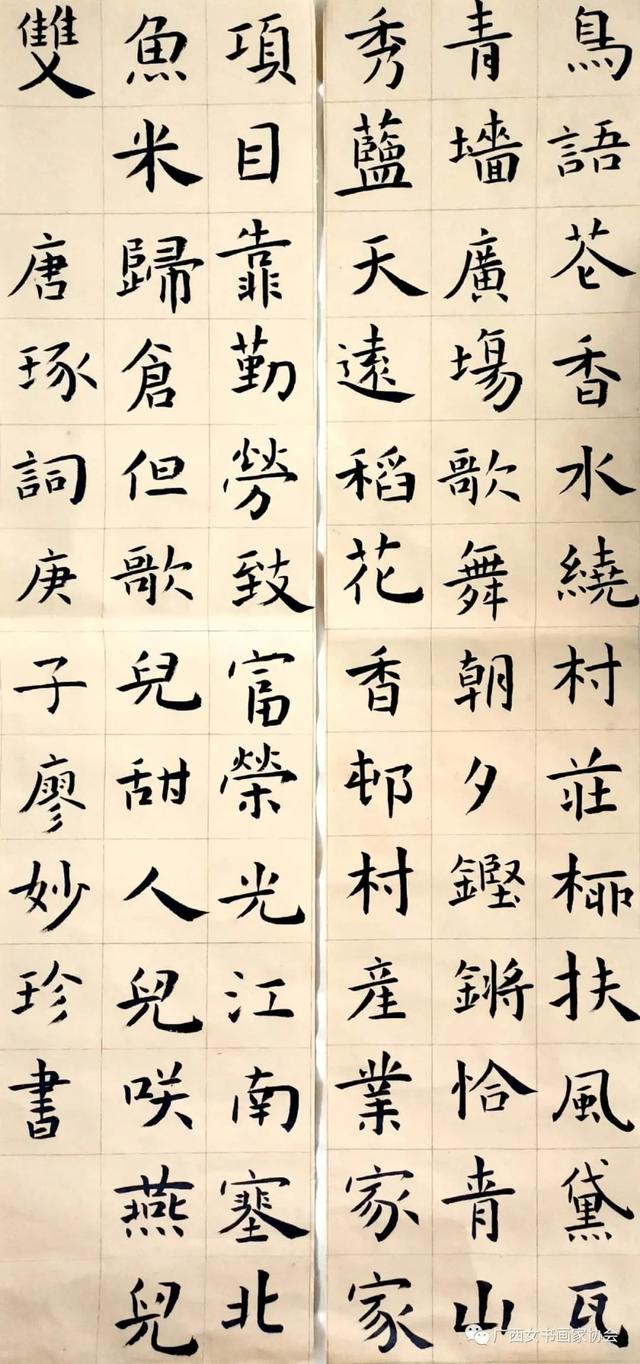 鳥語苍香水繞村莊栁扶風黛瓦
青墻廣場歌舞朝夕鏗鏘恰青山
秀藍天遠稻花香邨村産業家家
項目靠勤勞致富榮光江南塞北
魚米歸倉但歌兒甜人兒咲燕兒
雙
唐琢詞庚子廖妙珍書
广西女书画家协会